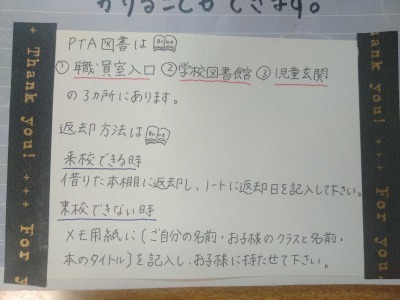 かりることができます。
PTA図書は Book
①職員室入口 ②学校図書館 ③児童玄関
の3カ所にあります。
返却方法は Book
来校できる時
借りた本棚に返却し、ノートに返却日を記入して下さい。
来校できない時
メモ用紙に〔ご自分の名前・お子様のクラスと名前・
本のタイトル〕を記入し、お子様に持たせて下さい。
+ Thank you! +++ For y
Thank you! +++ For you